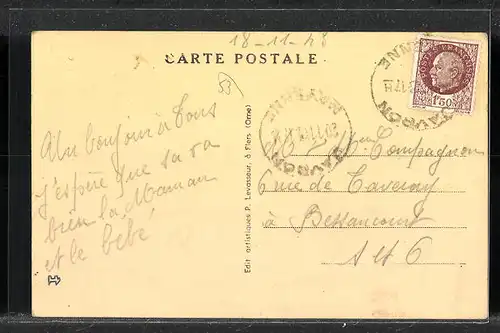 18-11-43
CARTE POSTALE
53
Un bonjour à tous
j'espère que sa va
bien la Maman
et le bébé
Edit artistiques P. Levasseur, à Flers (Orne)
POSTES FRANÇAISES
1F50
JAVRON
MAYENNE
JAVRON
MAYENNE
Mr Mme Compagnon
6 rue de Taverny
à Bessancourt
S et O